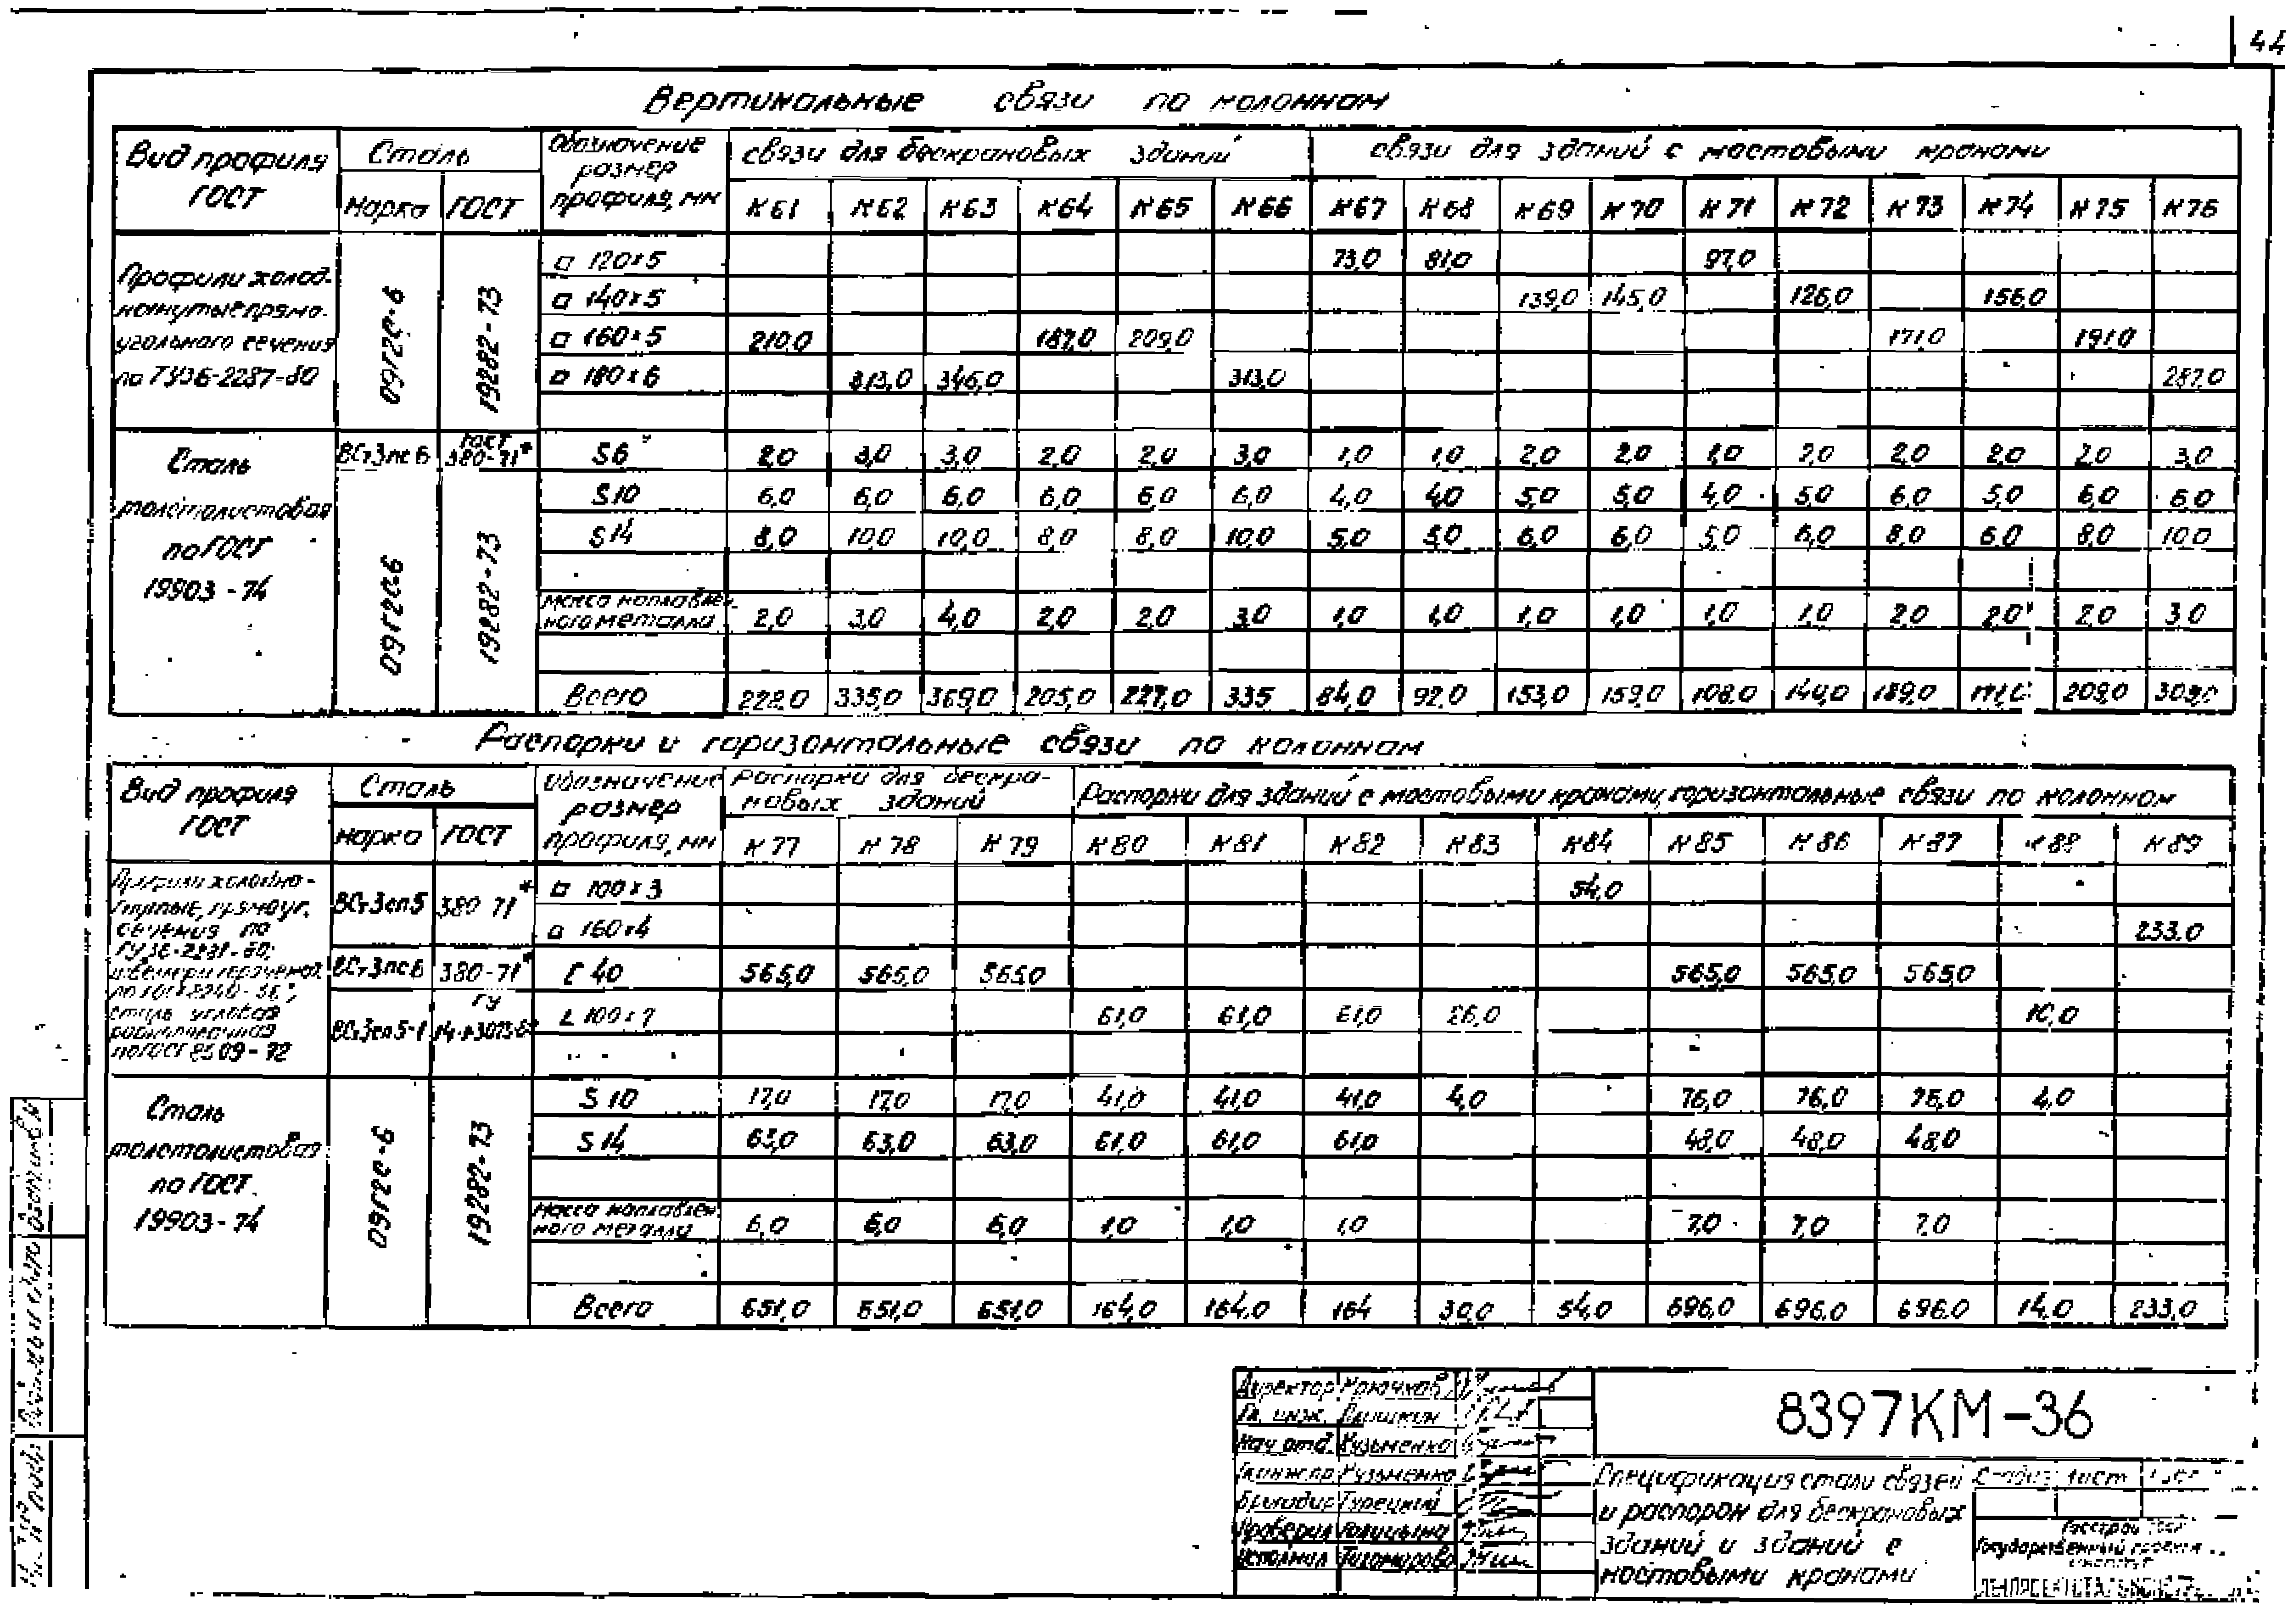 44
Вертикальные связи по колоннам
Вид профиля ГОСТ | Сталь | Обозначение размер профиля, мм | связи для бескрановых зданий | связи для зданий с мостовыми кранами
марка | ГОСТ | К61 | К62 | К63 | К64 | К65 | К66 | К67 | К68 | К69 | К70 | К71 | К72 | К73 | К74 | К75 | К76
Профили холод-
ногнутые прямо-
угольного сечения
по ТУ36-2287-80
09Г2С-6 | 19282-73
□ 120×5 | 73,0 | 81,0 | 97,0
□ 140×5 | 139,0 | 145,0 | 126,0 | 156,0
□ 160×5 | 210,0 | 187,0 | 209,0 | 171,0 | 191,0
□ 180×6 | 313,0 | 346,0 | 313,0 | 287,0
Сталь
толстолистовая
по ГОСТ
19903-74
ВСт3пс6 | ГОСТ 380-71*
09Г2С-6 | 19282-73
S6 | 2,0 | 3,0 | 3,0 | 2,0 | 2,0 | 3,0 | 1,0 | 1,0 | 2,0 | 2,0 | 1,0 | 2,0 | 2,0 | 2,0 | 2,0 | 3,0
S10 | 6,0 | 6,0 | 6,0 | 6,0 | 6,0 | 6,0 | 4,0 | 4,0 | 5,0 | 5,0 | 4,0 | 5,0 | 6,0 | 5,0 | 6,0 | 6,0
S14 | 8,0 | 10,0 | 10,0 | 8,0 | 8,0 | 10,0 | 5,0 | 5,0 | 6,0 | 6,0 | 5,0 | 6,0 | 8,0 | 6,0 | 8,0 | 10,0
Масса наплавлен-
ного металла | 2,0 | 3,0 | 4,0 | 2,0 | 2,0 | 3,0 | 1,0 | 1,0 | 1,0 | 1,0 | 1,0 | 1,0 | 2,0 | 2,0 | 2,0 | 3,0
Всего | 228,0 | 335,0 | 369,0 | 205,0 | 227,0 | 335 | 84,0 | 92,0 | 153,0 | 159,0 | 108,0 | 140,0 | 189,0 | 171,0 | 209,0 | 309,0
Распорки и горизонтальные связи по колоннам
Вид профиля ГОСТ | Сталь | Обозначение размер профиля, мм | Распорки для бескра-новых зданий | Распорки для зданий с мостовыми кранами, горизонтальные связи по колоннам
марка | ГОСТ | К77 | К78 | К79 | К80 | К81 | К82 | К83 | К84 | К85 | К86 | К87 | К88 | К89
Профили холодно-
гнутые, прямоуг.
сечения по
ТУ36-2287-80;
швеллеры горячекат.
по ГОСТ 8240-
сталь угловая
равнополочная
по ГОСТ 8509-72
ВСт3сп5 | 380-71*
□ 100×3 | 54,0
□ 160×4 | 233,0
ВСт3пс6 | 380-71*
[ 40 | 565,0 | 565,0 | 565,0 | 565,0 | 565,0 | 565,0
ВСт3сп5-1 | ТУ
L 100×7 | 61,0 | 61,0 | 61,0 | 26,0 | 10,0
Сталь
толстолистовая
по ГОСТ
19903-74
09Г2С-6 | 19282-73
S10 | 17,0 | 17,0 | 17,0 | 41,0 | 41,0 | 41,0 | 4,0 | 76,0 | 76,0 | 76,0 | 4,0
S14 | 63,0 | 63,0 | 63,0 | 61,0 | 61,0 | 61,0 | 48,0 | 48,0 | 48,0
Масса наплавлен-
ного металла | 6,0 | 6,0 | 6,0 | 1,0 | 1,0 | 1,0 | 7,0 | 7,0 | 7,0
Всего | 651,0 | 651,0 | 651,0 | 164,0 | 164,0 | 164 | 30,0 | 54,0 | 696,0 | 696,0 | 696,0 | 14,0 | 233,0
Директор Крючков
Гл. инж.
Нач. отд. Кузьменко
Гл.инж.пр Кузьменко
Бригадир Турецкий
Проверил Голицына
Исполнил Тихомирова
8397КМ-36
Спецификация стали связей
и распорок для бескрановых
зданий и зданий с
мостовыми кранами
Стадия Лист
Госстрой СССР
Государственный проектн
институт
ЛЕНПРОЕКТСТАЛЬКОНСТ
Подпись и дата
№ подл.